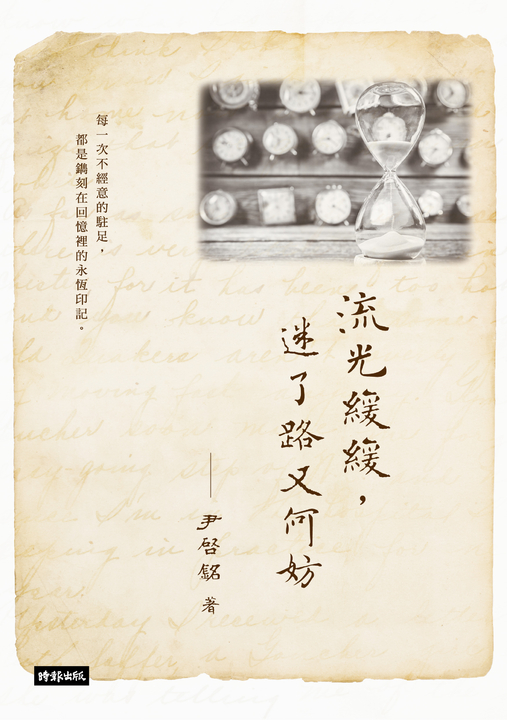 流光緩緩，
迷了路又何妨
尹啓銘 著
每一次不經意的駐足，
都是鐫刻在回憶裡的永恆印記。
時報出版